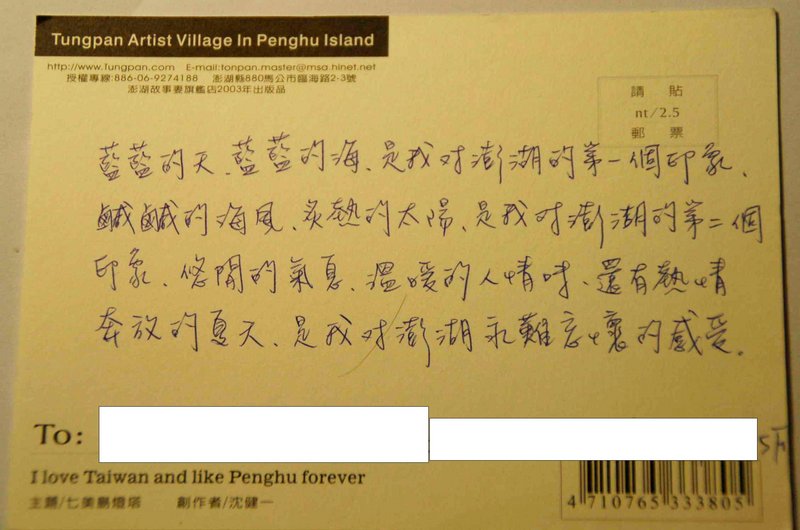 Tungpan Artist Village In Penghu Island
http://www.Tungpan.com E-mail:tonpan.master@msa.hinet.net
授權專線:886-06-9274188 澎湖縣880馬公市臨海路2-3號
澎湖故事妻旗艦店2003年出版品
請 貼
nt/2.5
郵 票
藍藍的天、藍藍的海、是我对澎湖的第一個印象、
鹹鹹的海風、炙熱的太陽、是我对澎湖的第二個
印象、悠閒的氣息、溫暖的人情味、還有熱情
奔放的夏天、是我对澎湖永難忘懷的感受.
To:
5F
I love Taiwan and like Penghu forever
主題/七美島燈塔 創作者/沈健一
4 710765 333805